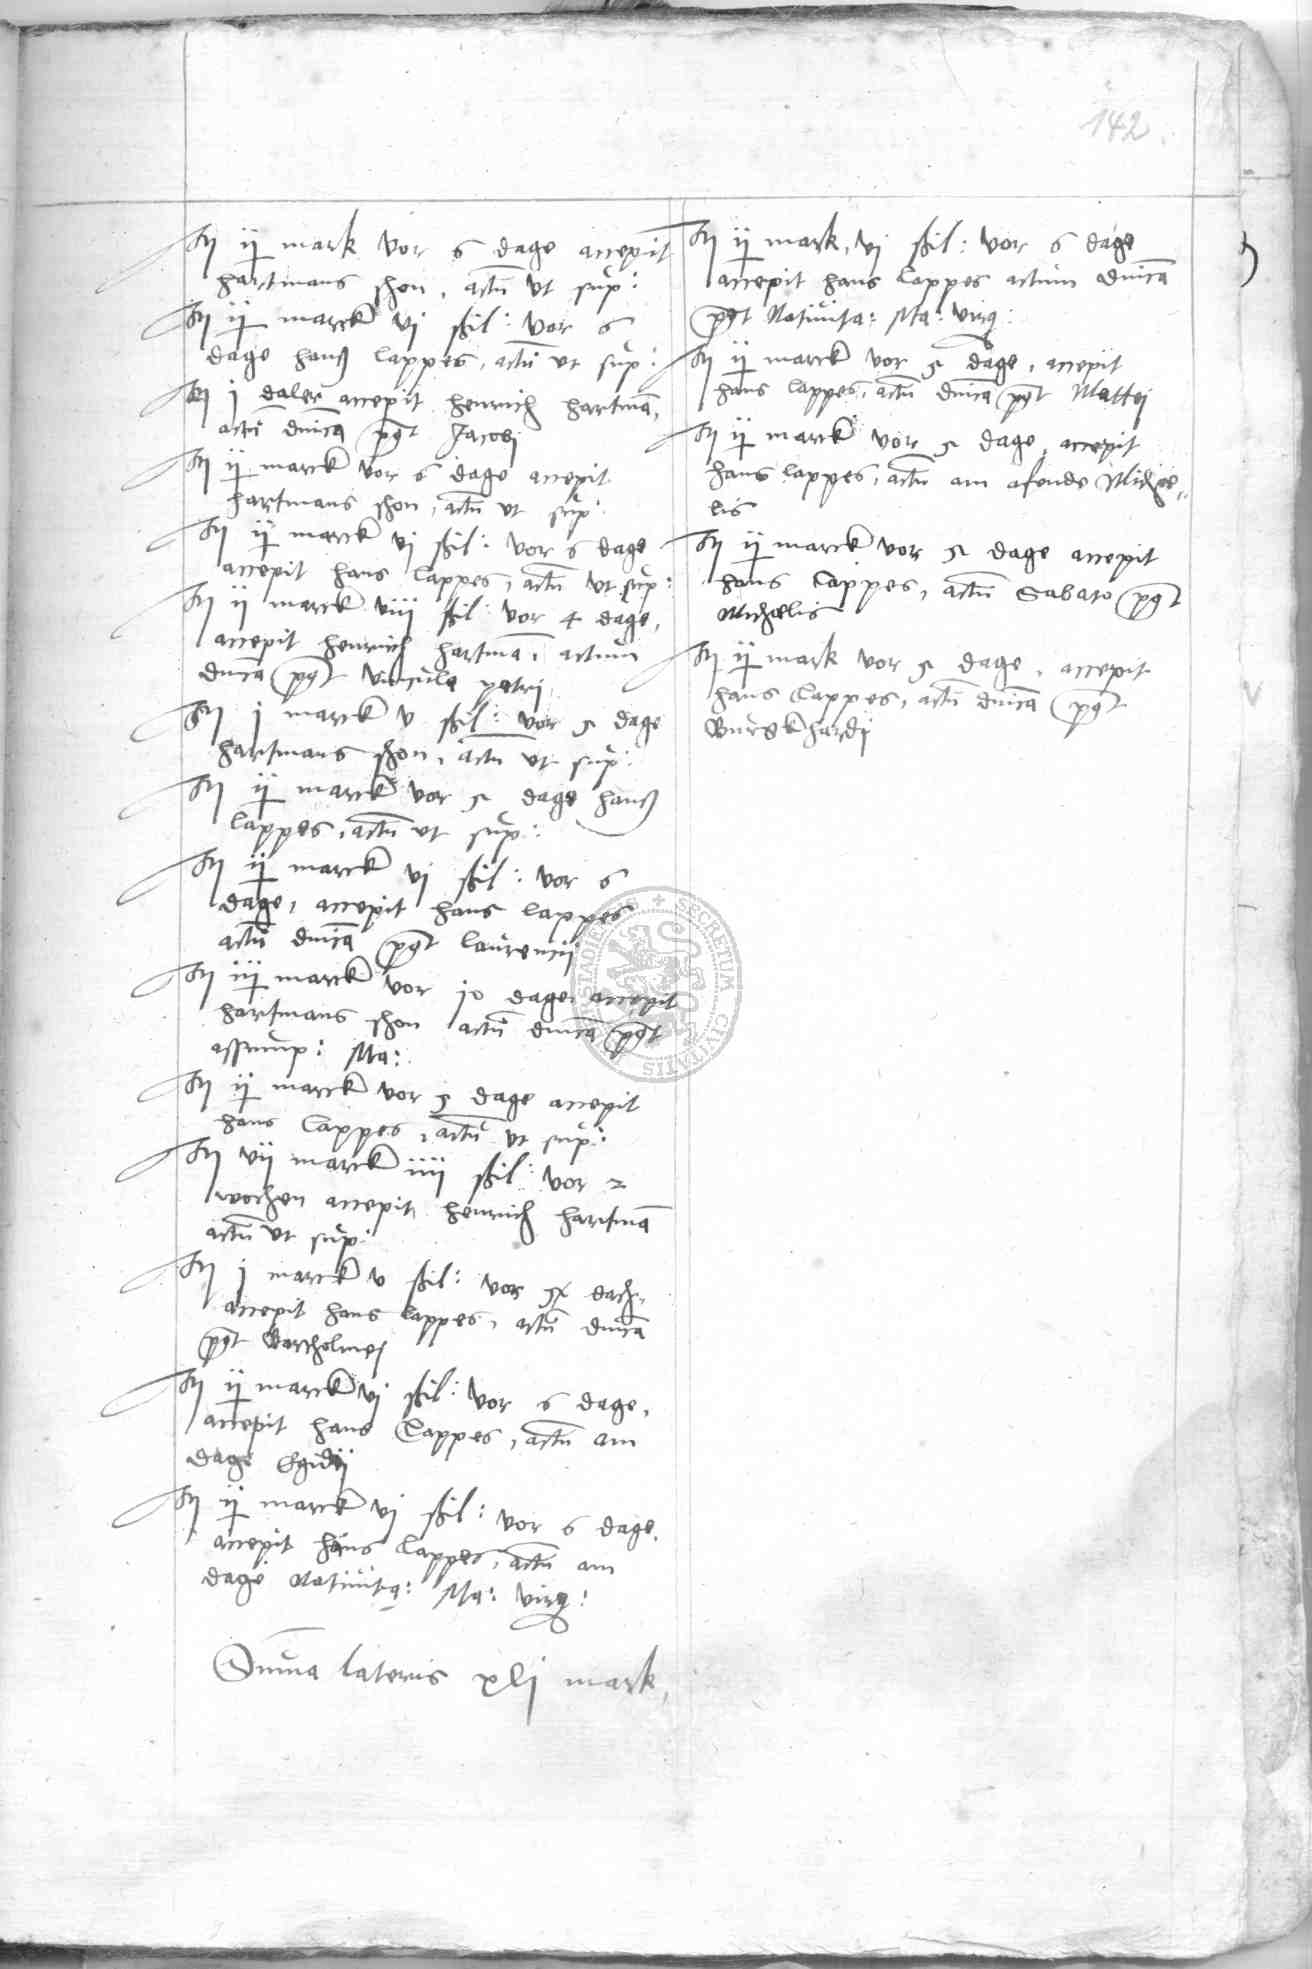 142
It ij mark vor 6 dage accepit
hartmans shon, actū ut sup:
It ij marck vj ßil: vor 6
dage hanß lappes, actū ut sup:
It j daler accepit henrich hartmā,
actū dnica pꝰt Jacobj
It ij marck vor 6 dage accepit
hartmans shon, actū ut sup:
It ij marck vj ßil: vor 6 dage
accepit hans lappes, actū ut sup:
It ij marck viij ßil: vor 4 dage,
accepit henrich hartmā, actum
dnica pꝰt vincula petrj
It j marck v ßil: vor 5 dage
hartmans shon, actū ut sup:
It ij marck vor 5 dage hanß
lappes, actū ut sup:
It ij marck vj ßil: vor 6
dage, accepit hans lappes
actū dnica pꝰt laurencij
It iij marck vor 10 dage, accepit
hartmans shon actū dnica pꝰt
assump: Ma:
It ij marck vor 5 dage accepit
hans lappes, actū ut sup:
It vij marck iiij ßil: vor 2
wochen accepit henrich hartmā
actū ut sup:
It j marck v ßil: vor dach,
accepit hans lappes, actū dnica
pꝰt Bartholmej
It ij marck vj ßil: vor 6 dage,
accepit hans lappes, actū am
dage Egidij
It ij marck vj ßil: vor 6 dage,
accepit hans lappes, actū am
dage Natiuita: Ma: virg:
Suma lateris xlj mark,
It ij mark, vj ßil: vor 6 dage
accepit hans lappes actum dnica
pꝰt Natiuita: Ma: virg:
It ij marck vor 5 dage, accepit
hans lappes, actū dnica pꝰt Mattej
It ij marck vor 5 dage, accepit
hans lappes, actū am afende Michae-
lis
It ij marck vor 5 dage accepit
hans lappes, actū Sabato pꝰt
Michaelis
It ij mark vor 5 dage, accepit
hans lappes, actū dnica pꝰt
Burgkhardj
SECRETUM CIVITATIS